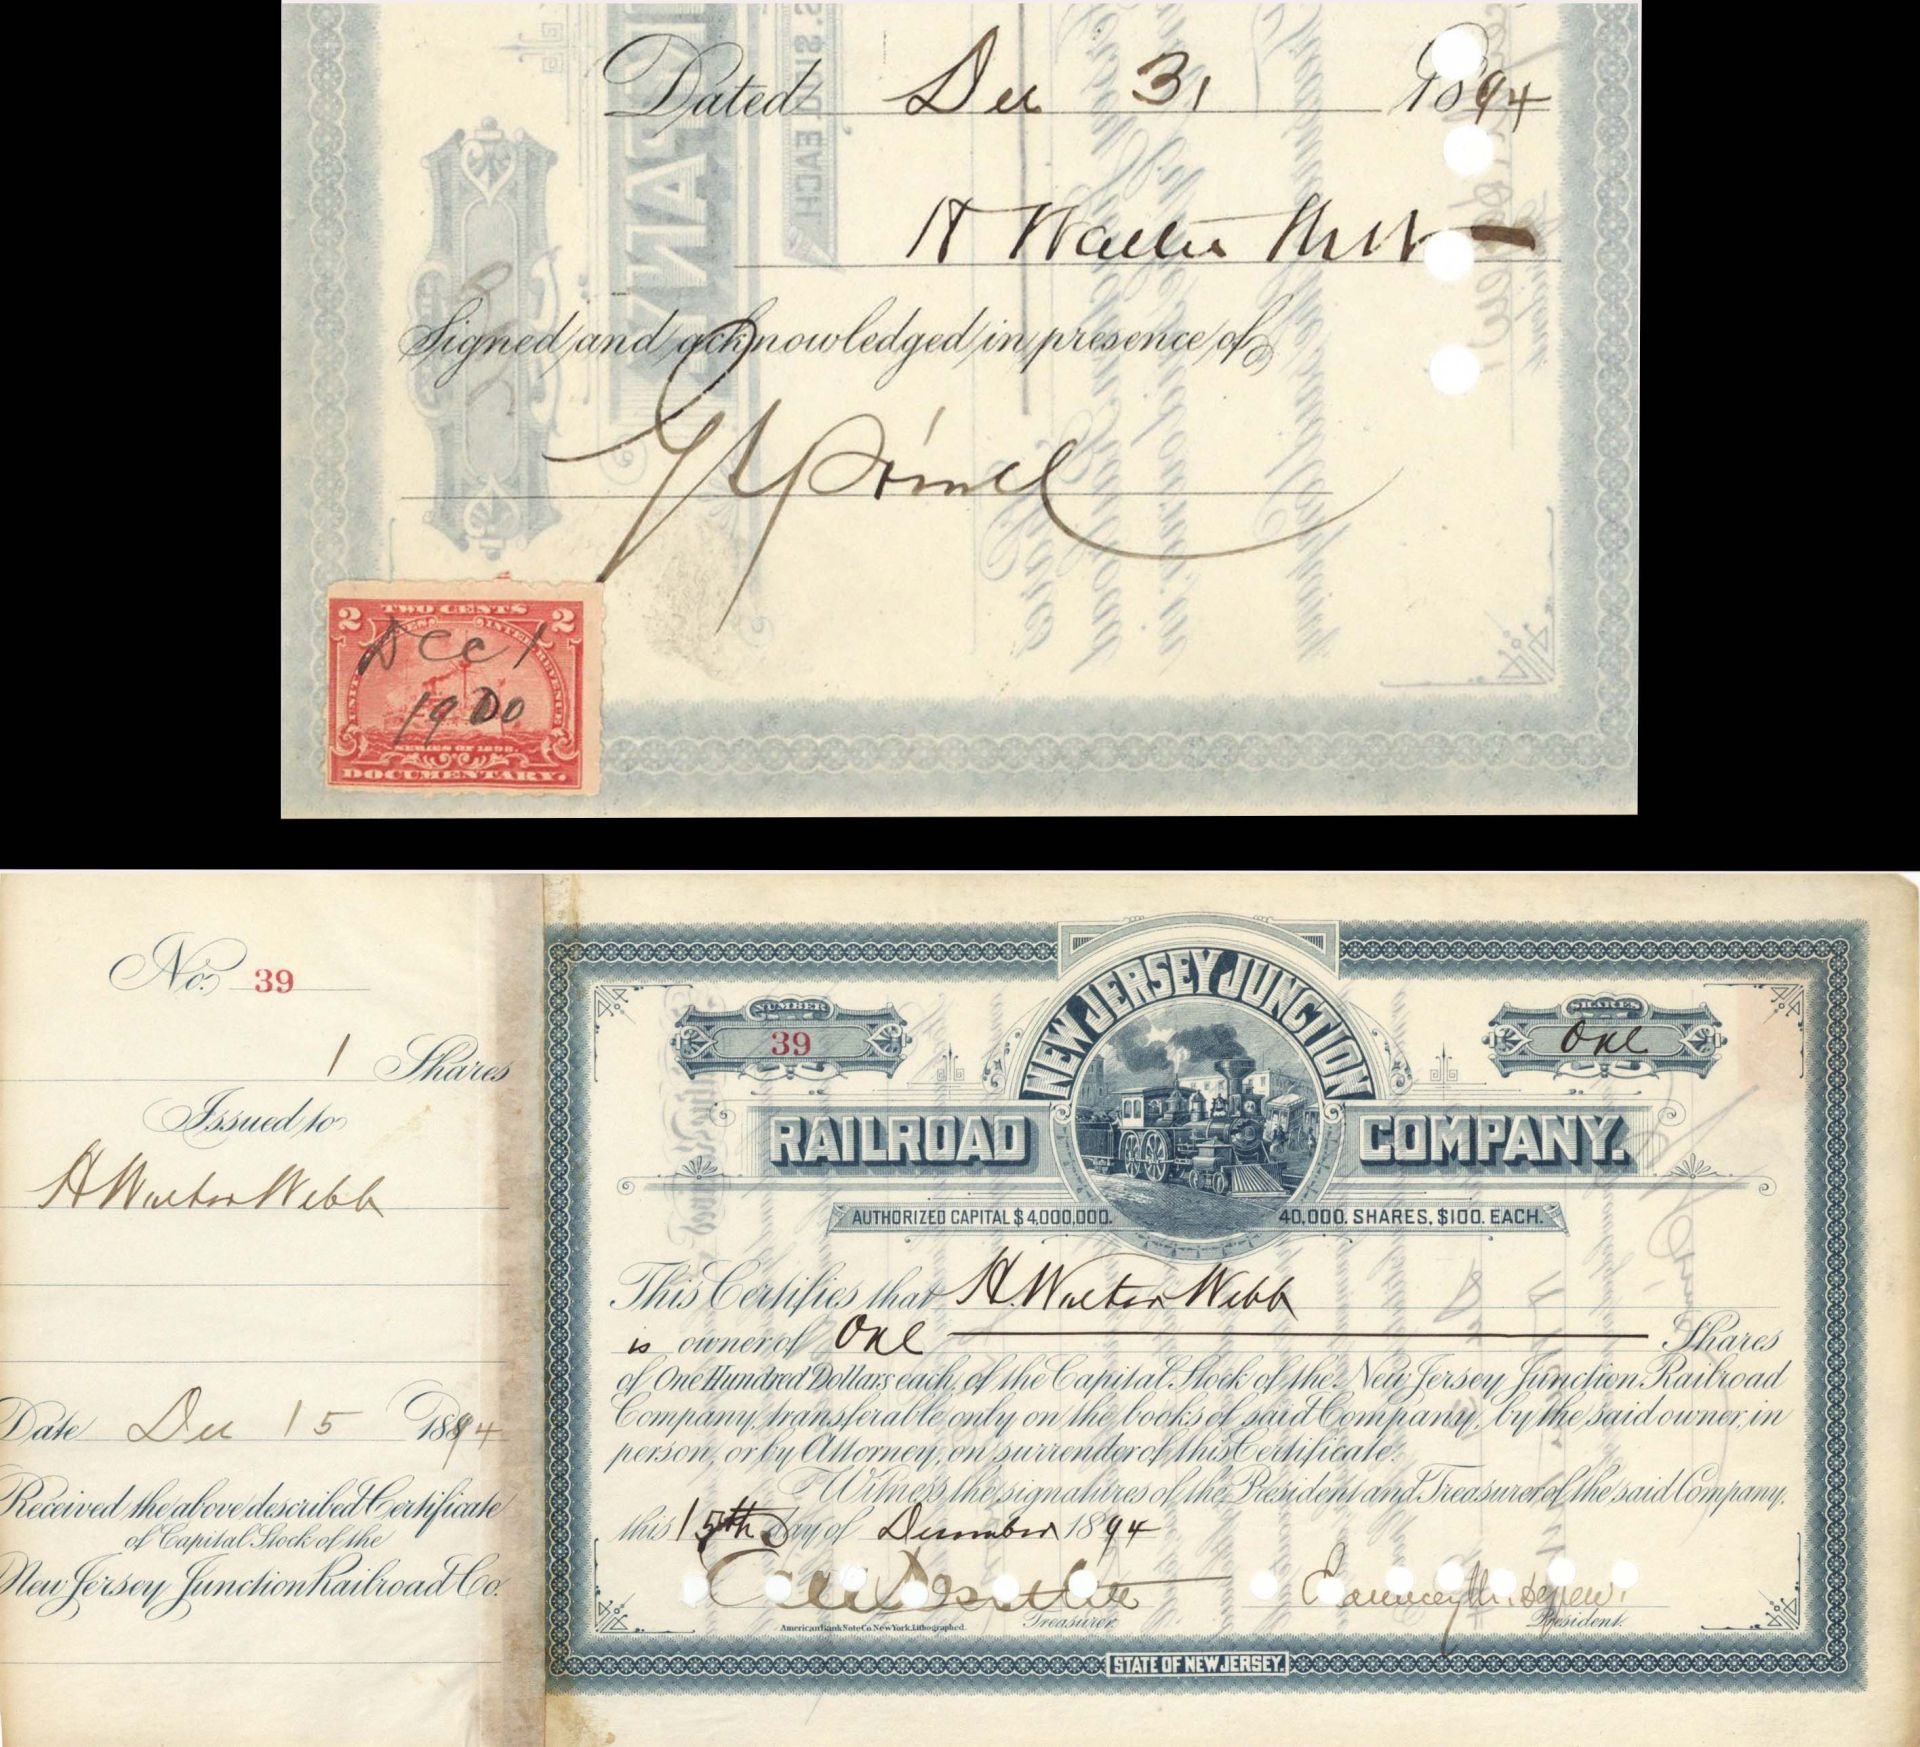 Dated Dec 31 1894
H Walter Webb
Signed and acknowledged in presence of
2 TWO CENTS 2
UNITED STATES INTERNAL REVENUE
Dec 1
1900
SERIES OF 1898.
DOCUMENTARY.
No. 39
1 Shares
Issued to
H Walter Webb
Date Dec 15 1894
Received the above described Certificate
of Capital Stock of the
New Jersey Junction Railroad Co.
NUMBER
39
SHARES
One
NEW JERSEY JUNCTION
RAILROAD COMPANY.
AUTHORIZED CAPITAL $4,000,000. 40,000. SHARES, $100. EACH.
This Certifies that H. Walter Webb
is owner of One Shares
of One Hundred Dollars each, of the Capital Stock of the New Jersey Junction Railroad
Company, transferable only on the books of said Company, by the said owner, in
person, or by Attorney, on surrender of this Certificate.
Witness the signatures of the President and Treasurer of the said Company,
this 15th day of December 1894
Chauncey M. Depew
Treasurer. President.
American Bank Note Co. New York. Lithographed.
STATE OF NEW JERSEY.